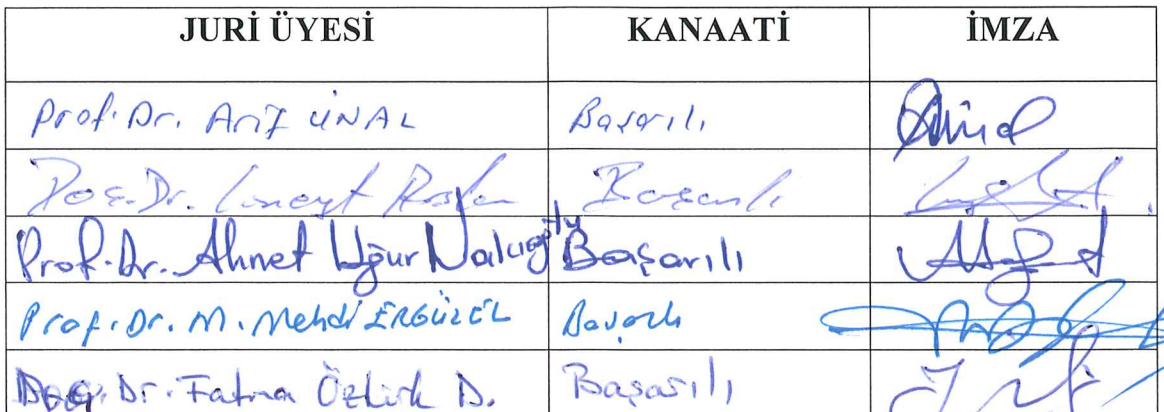 JURİ ÜYESİ KANAATİ İMZA
Prof. Dr. Arif ÜNAL Başarılı
Doç. Dr. Başarılı
Prof. Dr. Ahmet Uğur Nalcıoğlu Başarılı
Prof. Dr. M. Mehdi ERGÜZEL Başarılı
Doç. Dr. Fatma Öztürk D. Başarılı